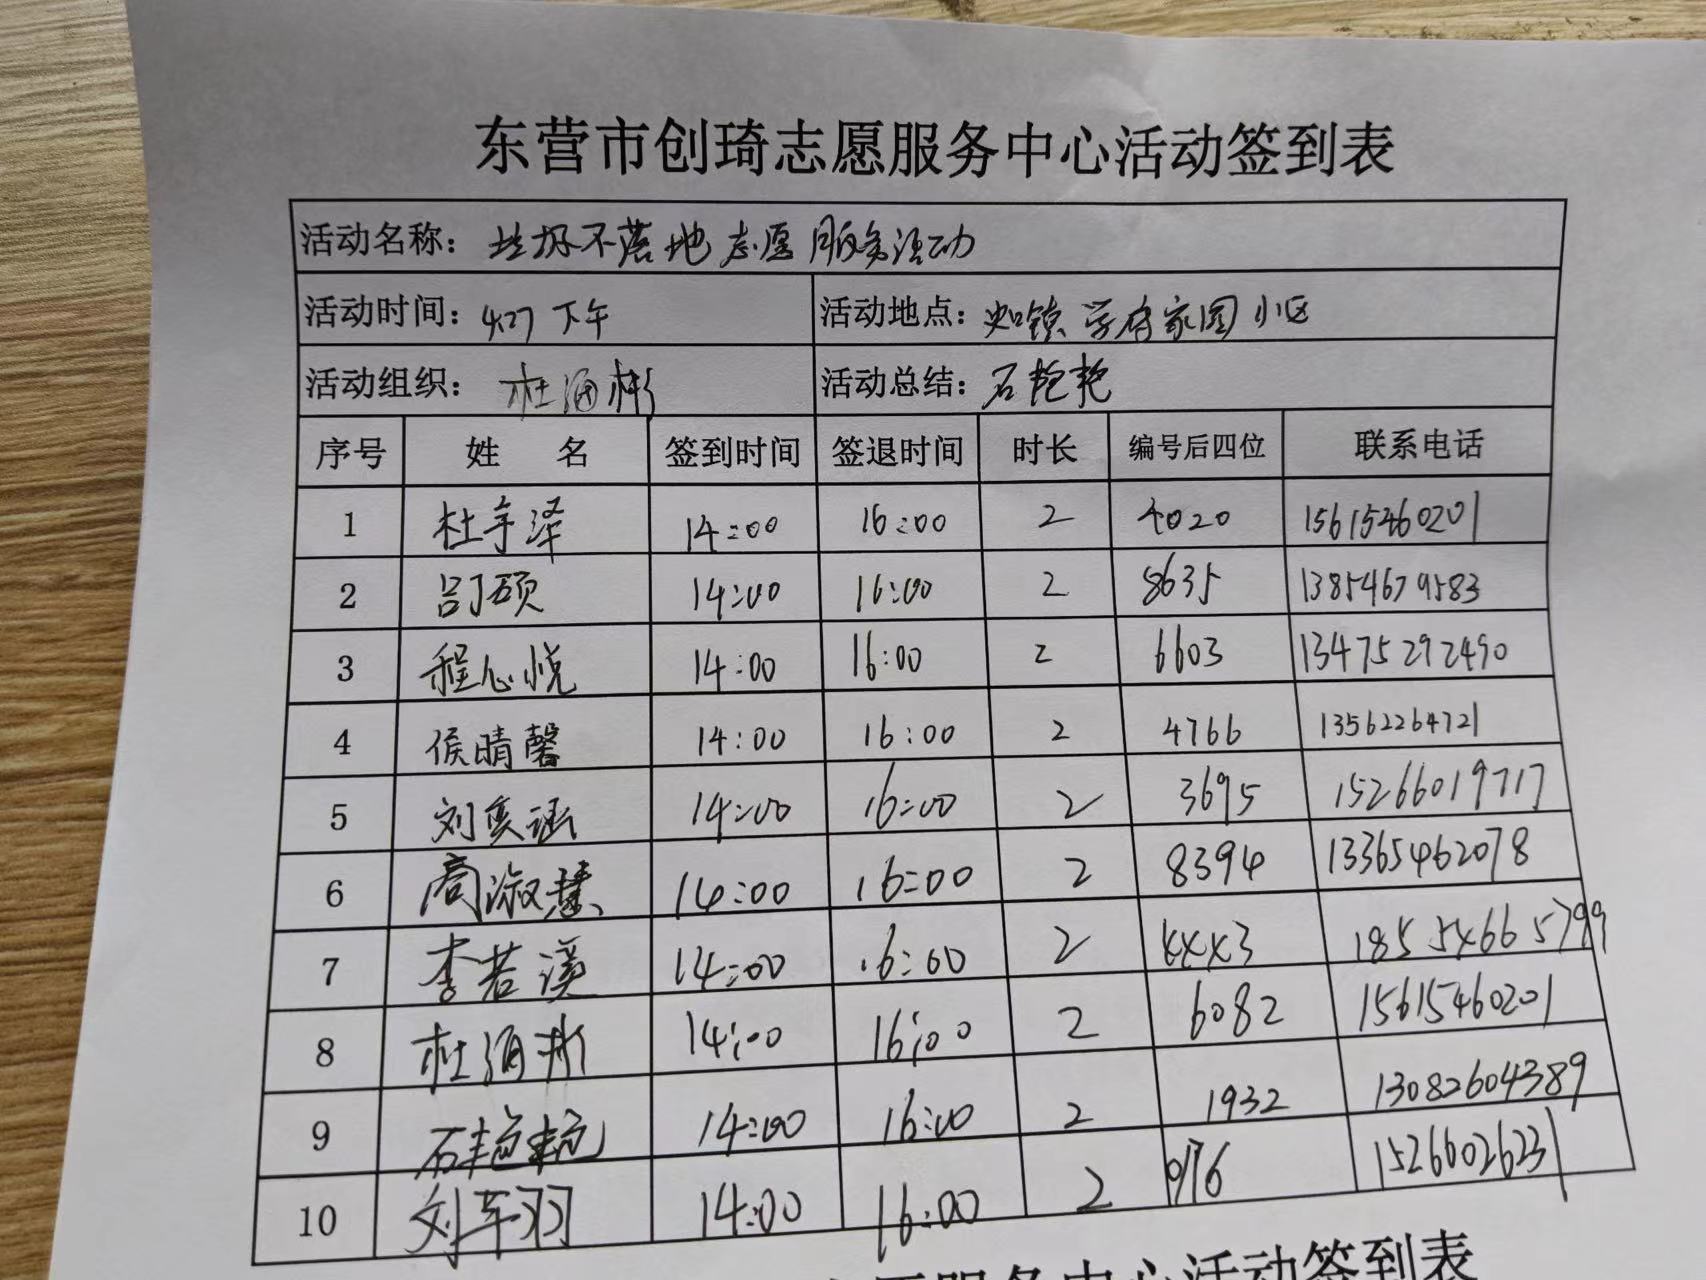 东营市创琦志愿服务中心活动签到表
活动名称: 垃圾不落地志愿服务活动
活动时间: 4.27 下午 活动地点: 学府家园小区
活动组织: 杜海彬 活动总结: 石艳艳
序号 姓 名 签到时间 签退时间 时长 编号后四位 联系电话
1 杜宇泽 14:00 16:00 2 4020 15615460201
2 吕硕 14:00 16:00 2 8635 13854679583
3 程心悦 14:00 16:00 2 6603 13475292490
4 侯晴馨 14:00 16:00 2 4766 13562264721
5 刘奕涵 14:00 16:00 2 3695 15266019717
6 周淑慧 14:00 16:00 2 8394 13365462078
7 李若溪 14:00 16:00 2 xxx3 18554665799
8 杜海彬 14:00 16:00 2 6082 15615460201
9 石艳艳 14:00 16:00 2 1932 13082604389
10 刘羽 14:00 16:00 2 0176 15266026231
志愿服务中心活动签到表